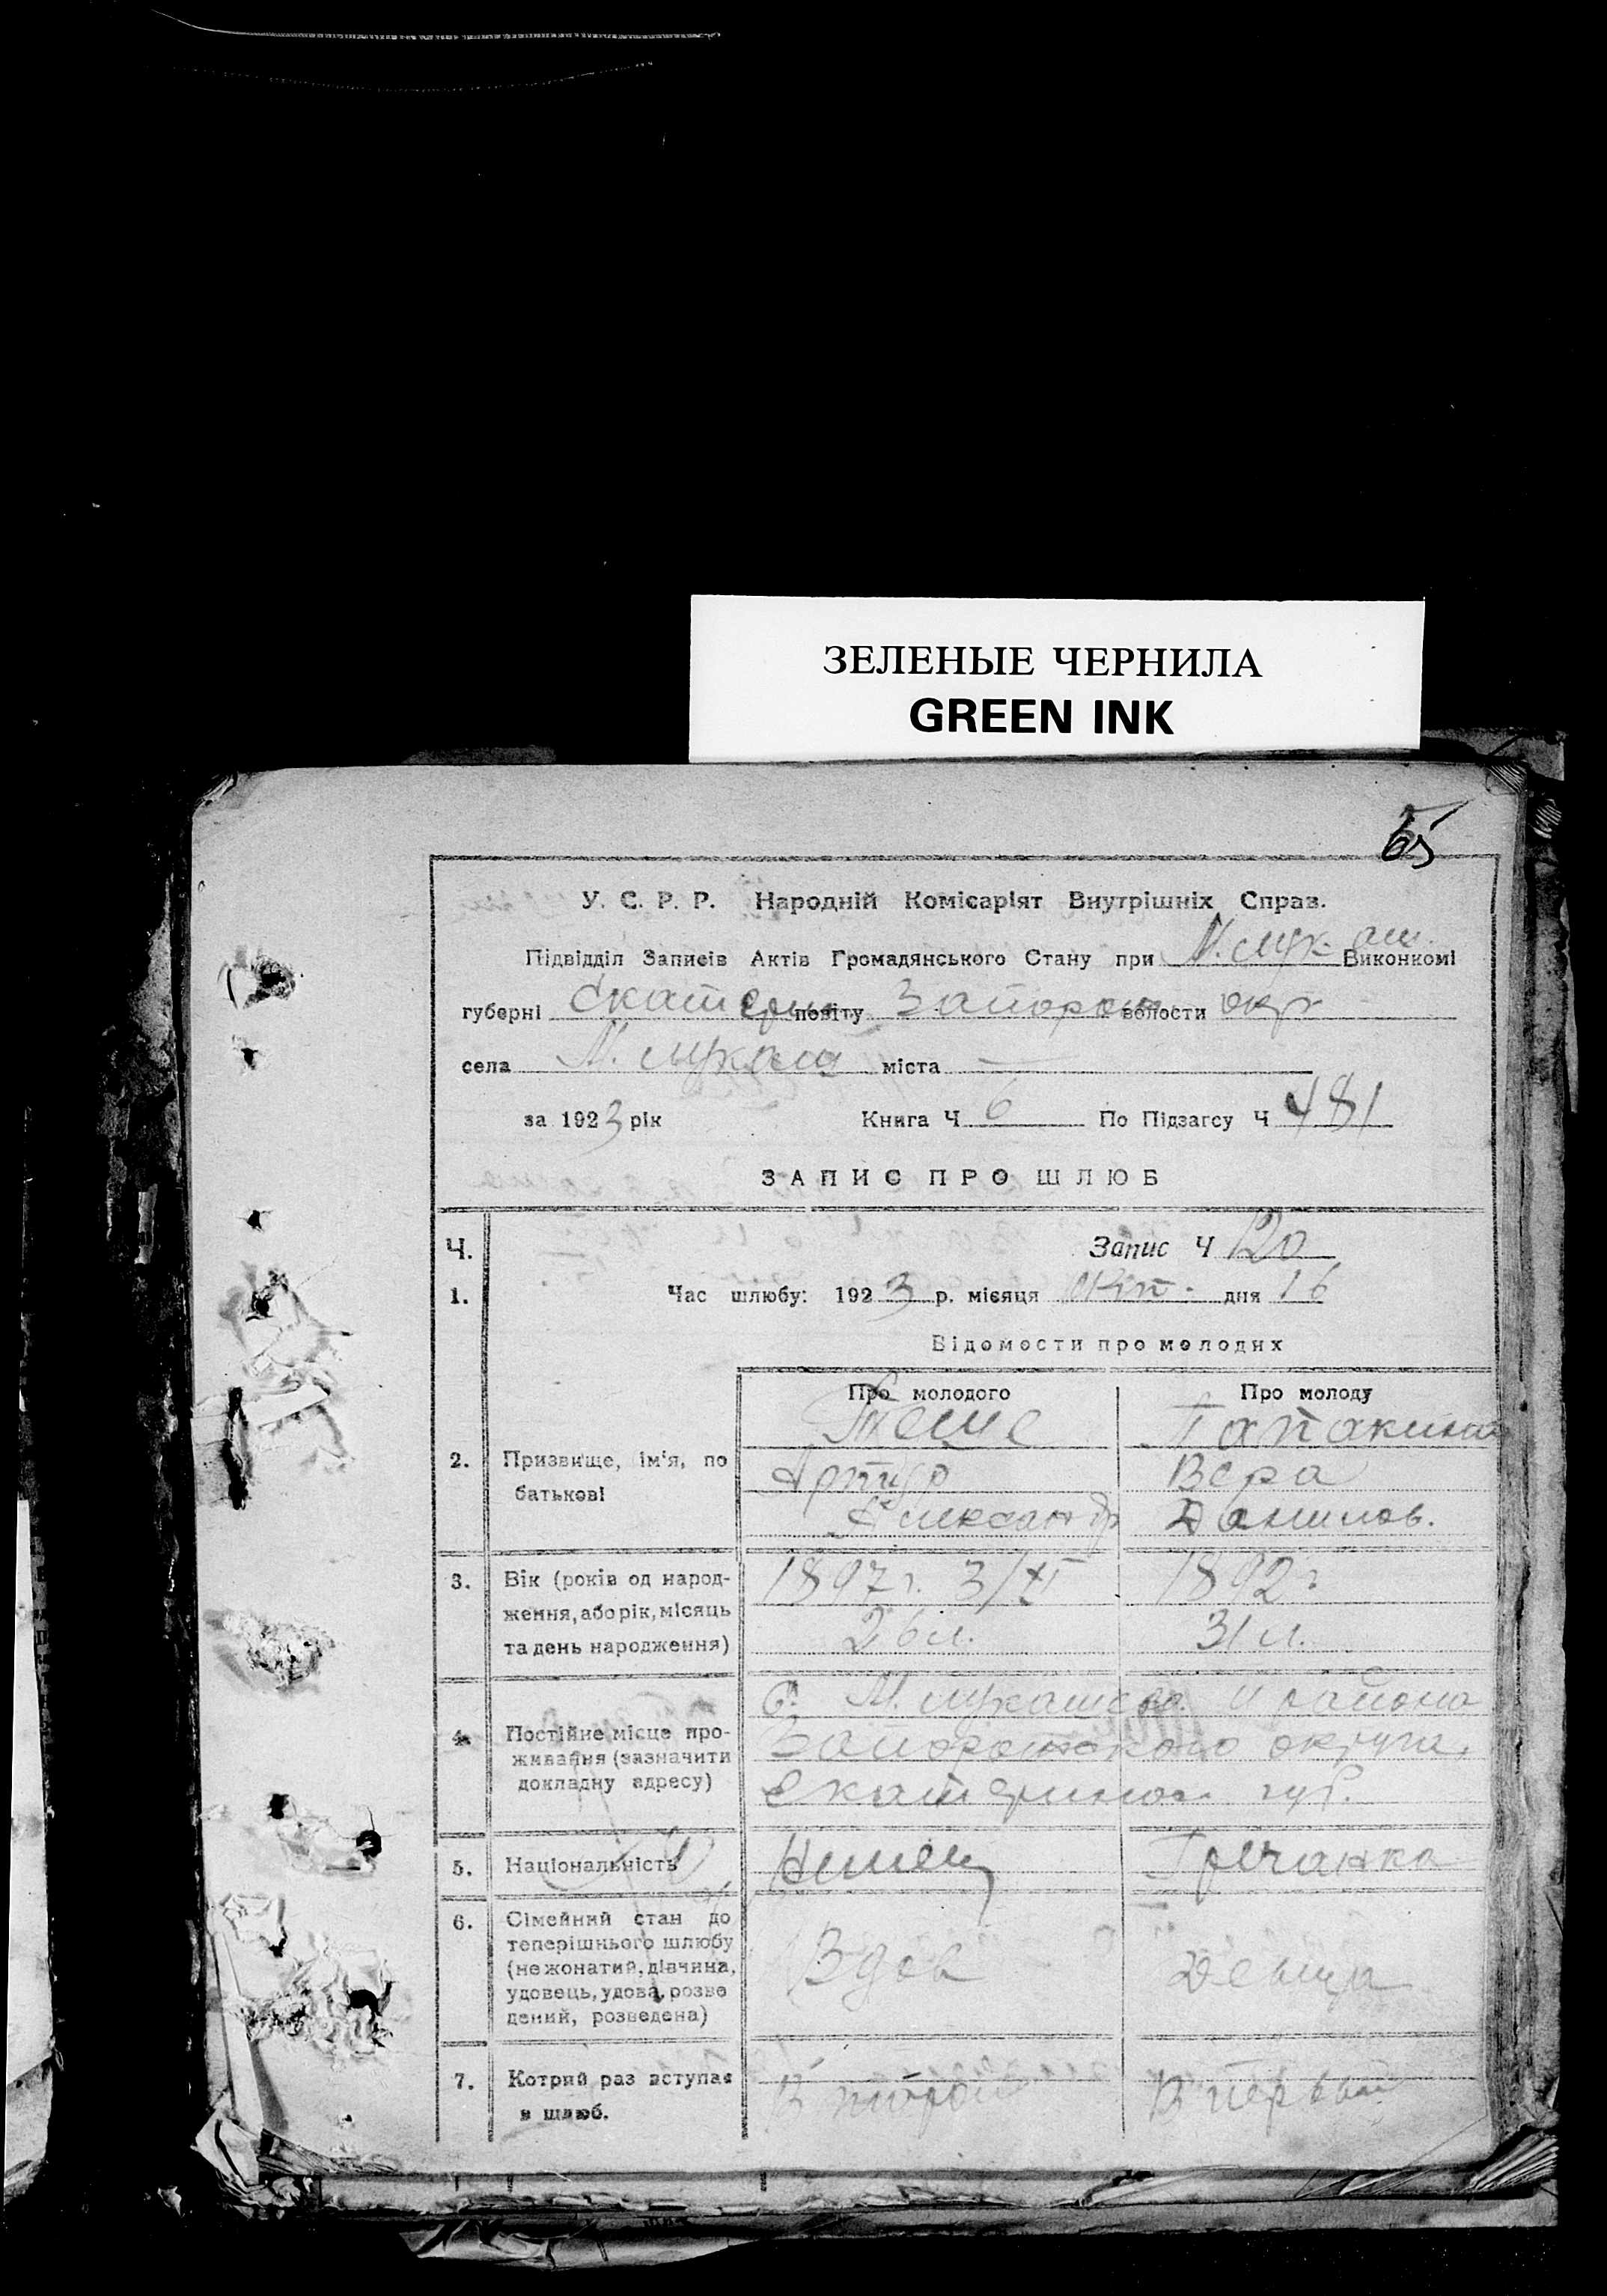 ЗЕЛЕНЫЕ ЧЕРНИЛА
GREEN INK
У. С. Р. Р. Народній Комісаріят Внутрішніх Справ.
Підвідділ Записів Актів Громадянського Стану при М. Лукаш. Виконкомі
губерні Екатерин повіту Запорож волости окр
села М. Лукаш міста —
за 1923 рік Книга Ч 6 По Підзагсу Ч 481
ЗАПИС ПРО ШЛЮБ
Ч. Запис Ч 20
1. Час шлюбу: 1923 р. місяця Окт. дня 16
Відомости про молодих
Про молодого Про молоду
2. Призвище, ім'я, по батькові
Артур Вера
Александр Данилов.
3. Вік (років од народ-
ження, або рік, місяць
та день народження)
1897 г. 3/XI 1892 г
26 л. 31 л.
4. Постійне місце про-
живання (зазначити
докладну адресу)
С. М. Лукашево района
Запорожского округа,
Екатеринос. губ.
5. Національність Немец Гречанка
6. Сімейний стан до
теперішнього шлюбу
(нежонатий, дівчина,
удовець, удова, розве
дений, розведена)
Вдов Девица
7. Котрий раз вступає
в шлюб.
Второй В первый